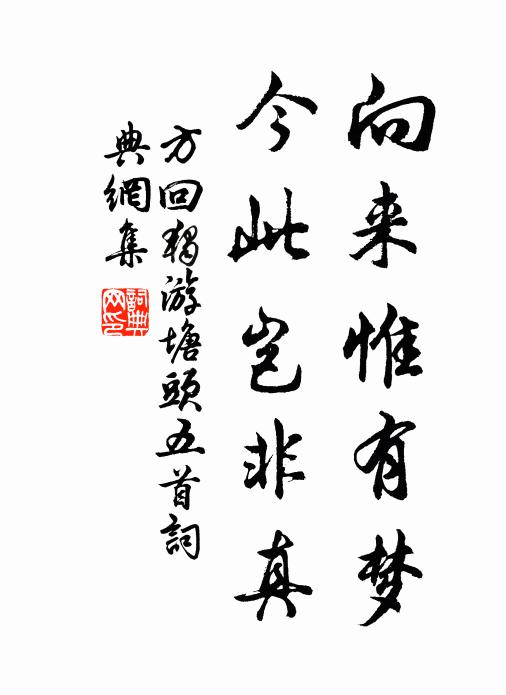 向来惟有梦
今此岂非真
方回獨游塘頭五首詞
典網集
詞典网印